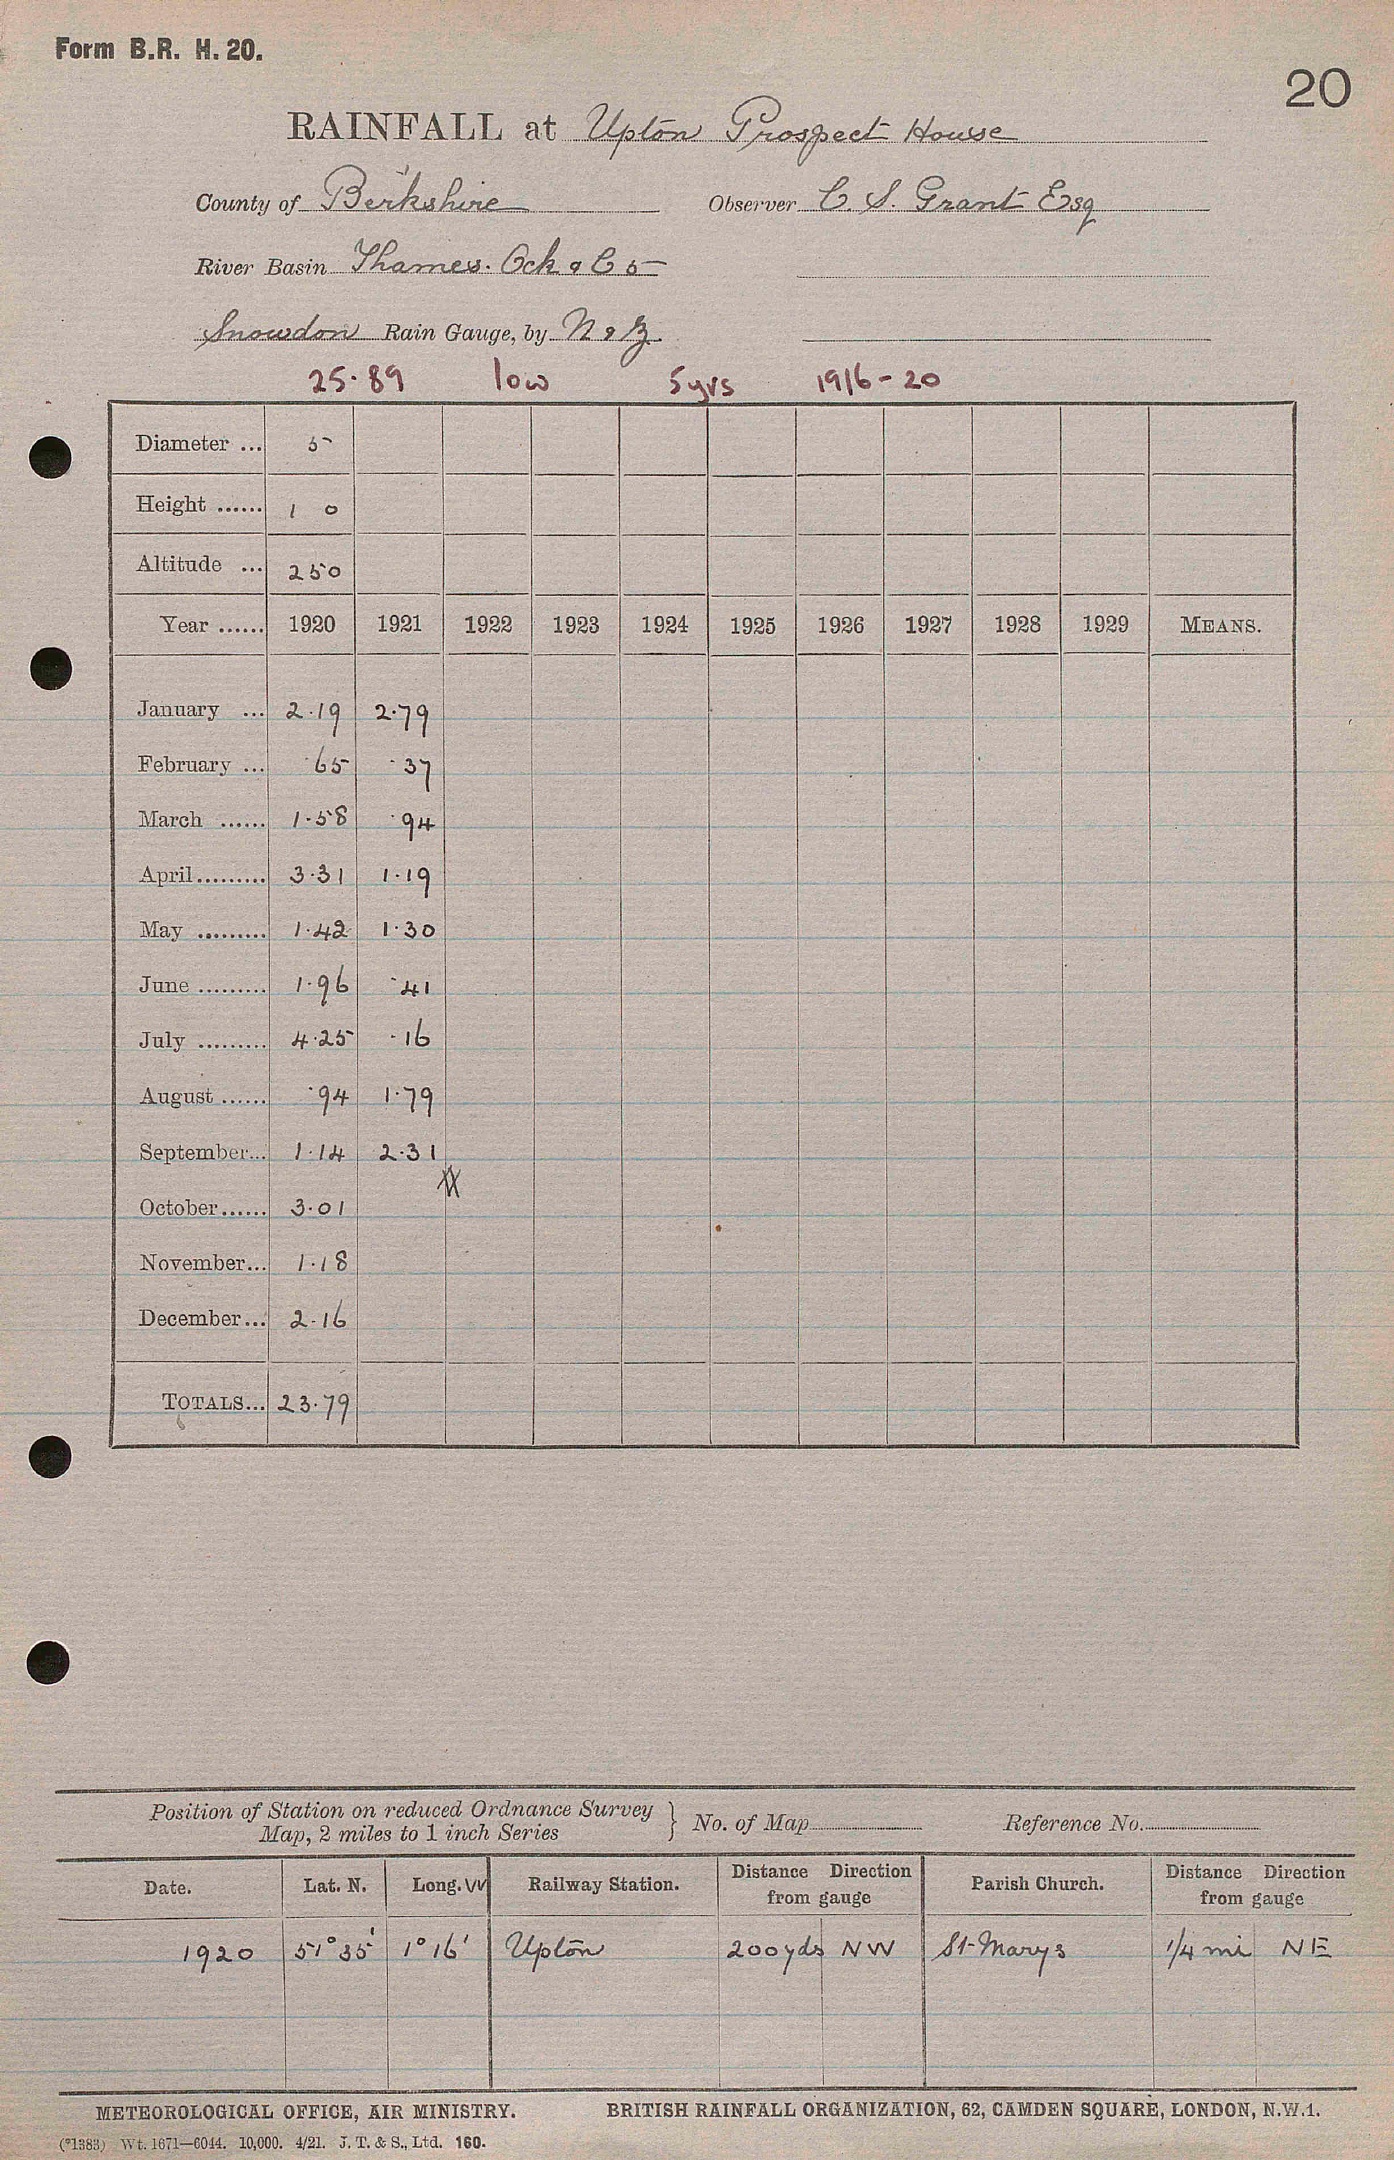 Form B.R. H. 20.
20
RAINFALL at Upton Prospect House
County of Berkshire Observer C. S. Grant Esq
River Basin Thames. Ock & C 5
Snowdon Rain Gauge, by N & Z.
25.89 low 5yrs 1916-20
Diameter ... 5
Height ...... 1 0
Altitude ... 250
Year ...... 1920 1921 1922 1923 1924 1925 1926 1927 1928 1929 MEANS.
January ... 2.19 2.79
February ... .65 .37
March ...... 1.58 .94
April......... 3.31 1.19
May ......... 1.42 1.30
June ......... 1.96 .41
July ......... 4.25 .16
August ...... .94 1.79
September... 1.14 2.31
October...... 3.01
November... 1.18
December... 2.16
TOTALS... 23.79
Position of Station on reduced Ordnance Survey
Map, 2 miles to 1 inch Series } No. of Map Reference No.
Date. Lat. N. Long. W Railway Station. Distance Direction from gauge Parish Church. Distance Direction from gauge
1920 51° 35' 1° 16' Upton 200yds NW St-Marys 1/4 mi NE
METEOROLOGICAL OFFICE, AIR MINISTRY. BRITISH RAINFALL ORGANIZATION, 62, CAMDEN SQUARE, LONDON, N.W.1.
(*1383) Wt. 1671—6044. 10,000. 4/21. J. T. & S., Ltd. 160.